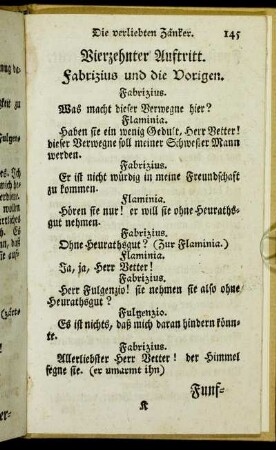 Die verliebten Zänker. 145
Vierzehnter Auftritt.
Fabrizius und die Vorigen.
Fabrizius.
Was macht dieser Verwegne hier?
Flaminia.
Haben sie ein wenig Gedult, Herr Vetter!
dieser Verwegne soll meiner Schwester Mann
werden.
Fabrizius.
Er ist nicht würdig in meine Freundschaft
zu kommen.
Flaminia.
Hören sie nur! er will sie ohne Heuraths-
gut nehmen.
Fabrizius.
Ohne Heurathsgut? (Zur Flaminia.)
Flaminia.
Ja, ja, Herr Vetter!
Fabrizius.
Herr Fulgenzio! sie nehmen sie also ohne
Heurathsgut?
Fulgenzio.
Es ist nichts, daß mich daran hindern könn-
te.
Fabrizius.
Allerliebster Herr Vetter! der Himmel
segne sie. (er umarmt ihn)
K
Fünf-